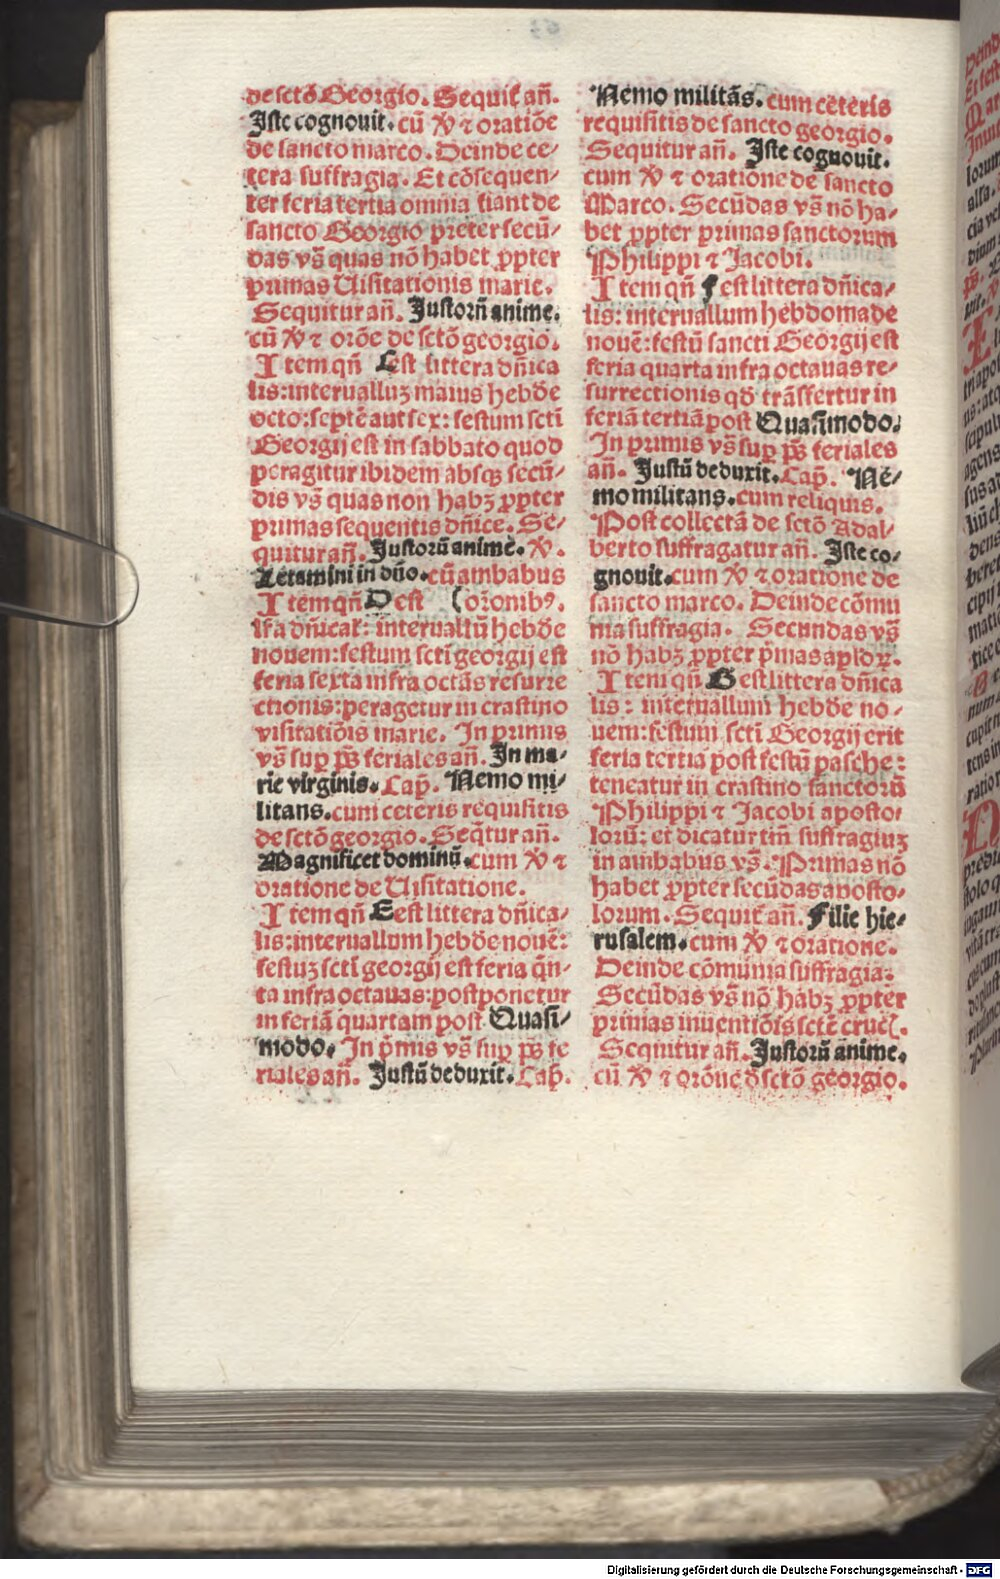 de sctō Georgio. Sequit̃ añ.
Iste cognouit. cū ℣ ⁊ oratiōe
de sancto marco. Deinde ce⸗
tera suffragia. Et cōsequen⸗
ter feria tertia omnia fiant de
sancto Georgio preter secū⸗
das vs̄ quas nō habet ꝓpter
primas Uisitationis marie.
Sequitur añ. Iustorū anime.
cū ℣ ⁊ orōe de sctō georgio.
Item qñ C est littera dn̄ica
lis: interualluʒ maius hebdōe
octo: septē aut sex: festum scti
Georgij est in sabbato quod
peragitur ibidem absqʒ secū⸗
dis vs̄ quas non habʒ ꝓpter
primas sequentis dn̄ice. Se⸗
quitur añ. Iustorū anime. ℣.
Letamini in dn̄o. cū ambabus
Item qñ D est (orōnibꝰ.
lr̄a dn̄ical: interuallū hebdōe
nouem: festum scti georgij est
feria sexta infra octās resurre
ctionis: peragetur in crastino
visitatiōis marie. In primis
vs̄ sup ps̄ feriales añ. In ma⸗
rie virginis. Cap. Nemo mi⸗
litans. cum ceteris requisitis
de sctō georgio. Seq̄tur añ.
Magnificet dominū. cum ℣ ⁊
oratione de Uisitatione.
Item qñ E est littera dn̄ica⸗
lis: interuallum hebdōe nouē:
festuʒ scti georgij est feria q̄n⸗
ta infra octauas: postponetur
in feriā quartam post Quasi⸗
modo. In p̄mis vs̄ sup ps̄ fe
riales añ. Iustū deduxit. Cap.
Nemo militās. cum ceteris
requisitis de sancto georgio.
Sequitur añ. Iste cognouit.
cum ℣ ⁊ oratione de sancto
Marco. Secūdas vs̄ nō ha⸗
bet ꝓpter primas sanctorum
Philippi ⁊ Jacobi.
Item qñ f est littera dn̄ica⸗
lis: interuallum hebdomade
nouē: festū sancti Georgij est
feria quarta infra octauas re⸗
surrectionis qd̄ trāsfertur in
feriā tertiā post Quasimodo.
In primis vs̄ sup ps̄ feriales
añ. Iustū deduxit. Cap. Ne⸗
mo militans. cum reliquis.
Post collectā de sctō Adal⸗
berto suffragatur añ. Iste co⸗
gnouit. cum ℣ ⁊ oratione de
sancto marco. Deinde cōmu
nia suffragia. Secundas vs̄
nō habʒ ꝓpter p̄mas apl̄oꝝ.
Item qñ G est littera dn̄ica
lis: interuallum hebdōe no⸗
uem: festum scti Georgij erit
feria tertia post festū pasche:
teneatur in crastino sanctorū
Philippi ⁊ Jacobi aposto⸗
lorū: et dicatur tm̄ suffragiuʒ
in ambabus vs̄. Primas nō
habet ꝓpter secūdas aposto⸗
lorum. Sequit̃ añ. Filie hie⸗
rusalem. cum ℣ ⁊ oratione.
Deinde cōmunia suffragia:
Secūdas vs̄ nō habʒ ꝓpter
primas inuentiōis sctē cruc̄.
Sequitur añ. Iustorū anime.
cū ℣ ⁊ orōne d̄ sctō georgio.
Digitalisierung gefördert durch die Deutsche Forschungsgemeinschaft - DFG